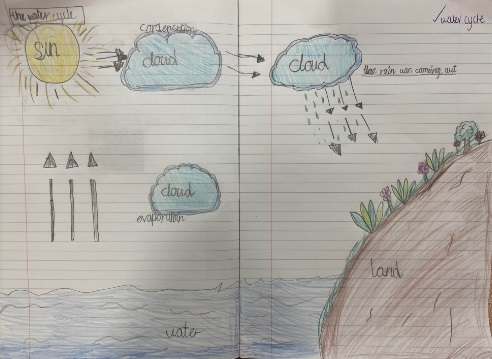 the water cycle
✓water cycle
sun
corlensation
cloud
cloud
ther rain was coming out
cloud
evaporation
land
water